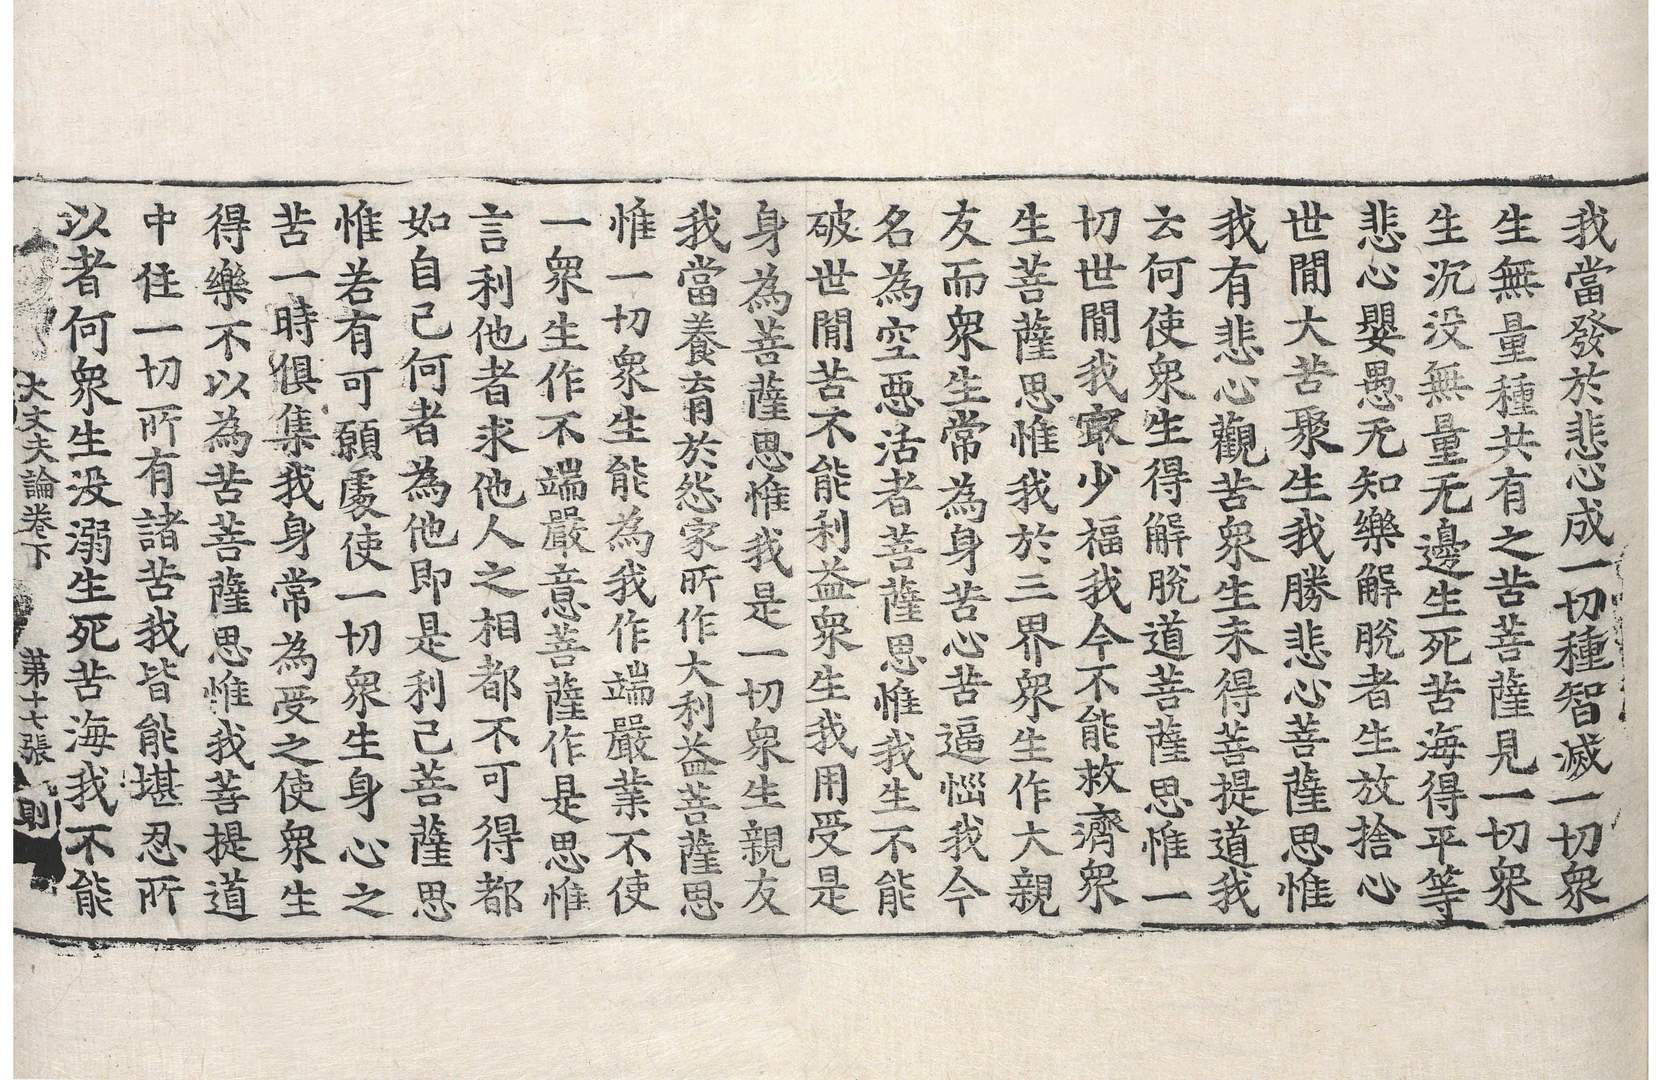 我當發於悲心成一切種智滅一切衆
生無量種共有之苦菩薩見一切衆
生沉没無量无邊生死苦海得平等
悲心嬰愚无知樂解脫者生放捨心
世閒大苦聚生我勝悲心菩薩思惟
我有悲心觀苦衆生未得菩提道我
云何使衆生得解脫道菩薩思惟一
切世閒我㝡少福我今不能救濟衆
生菩薩思惟我於三界衆生作大親
友而衆生常為身苦心苦逼惱我今
名為空惡活者菩薩思惟我生不能
破世閒苦不能利益衆生我用受是
身為菩薩思惟我是一切衆生親友
我當養育於怨家所作大利益菩薩思
惟一切衆生能為我作端嚴業不使
一衆生作不端嚴意菩薩作是思惟
言利他者求他人之相都不可得都
如自己何者為他即是利己菩薩思
惟若有可願處使一切衆生身心之
苦一時俱集我身常為受之使衆生
得樂不以為苦菩薩思惟我菩提道
中住一切所有諸苦我皆能堪忍所
以者何衆生没溺生死苦海我不能
大丈夫論卷下 第十七張 則